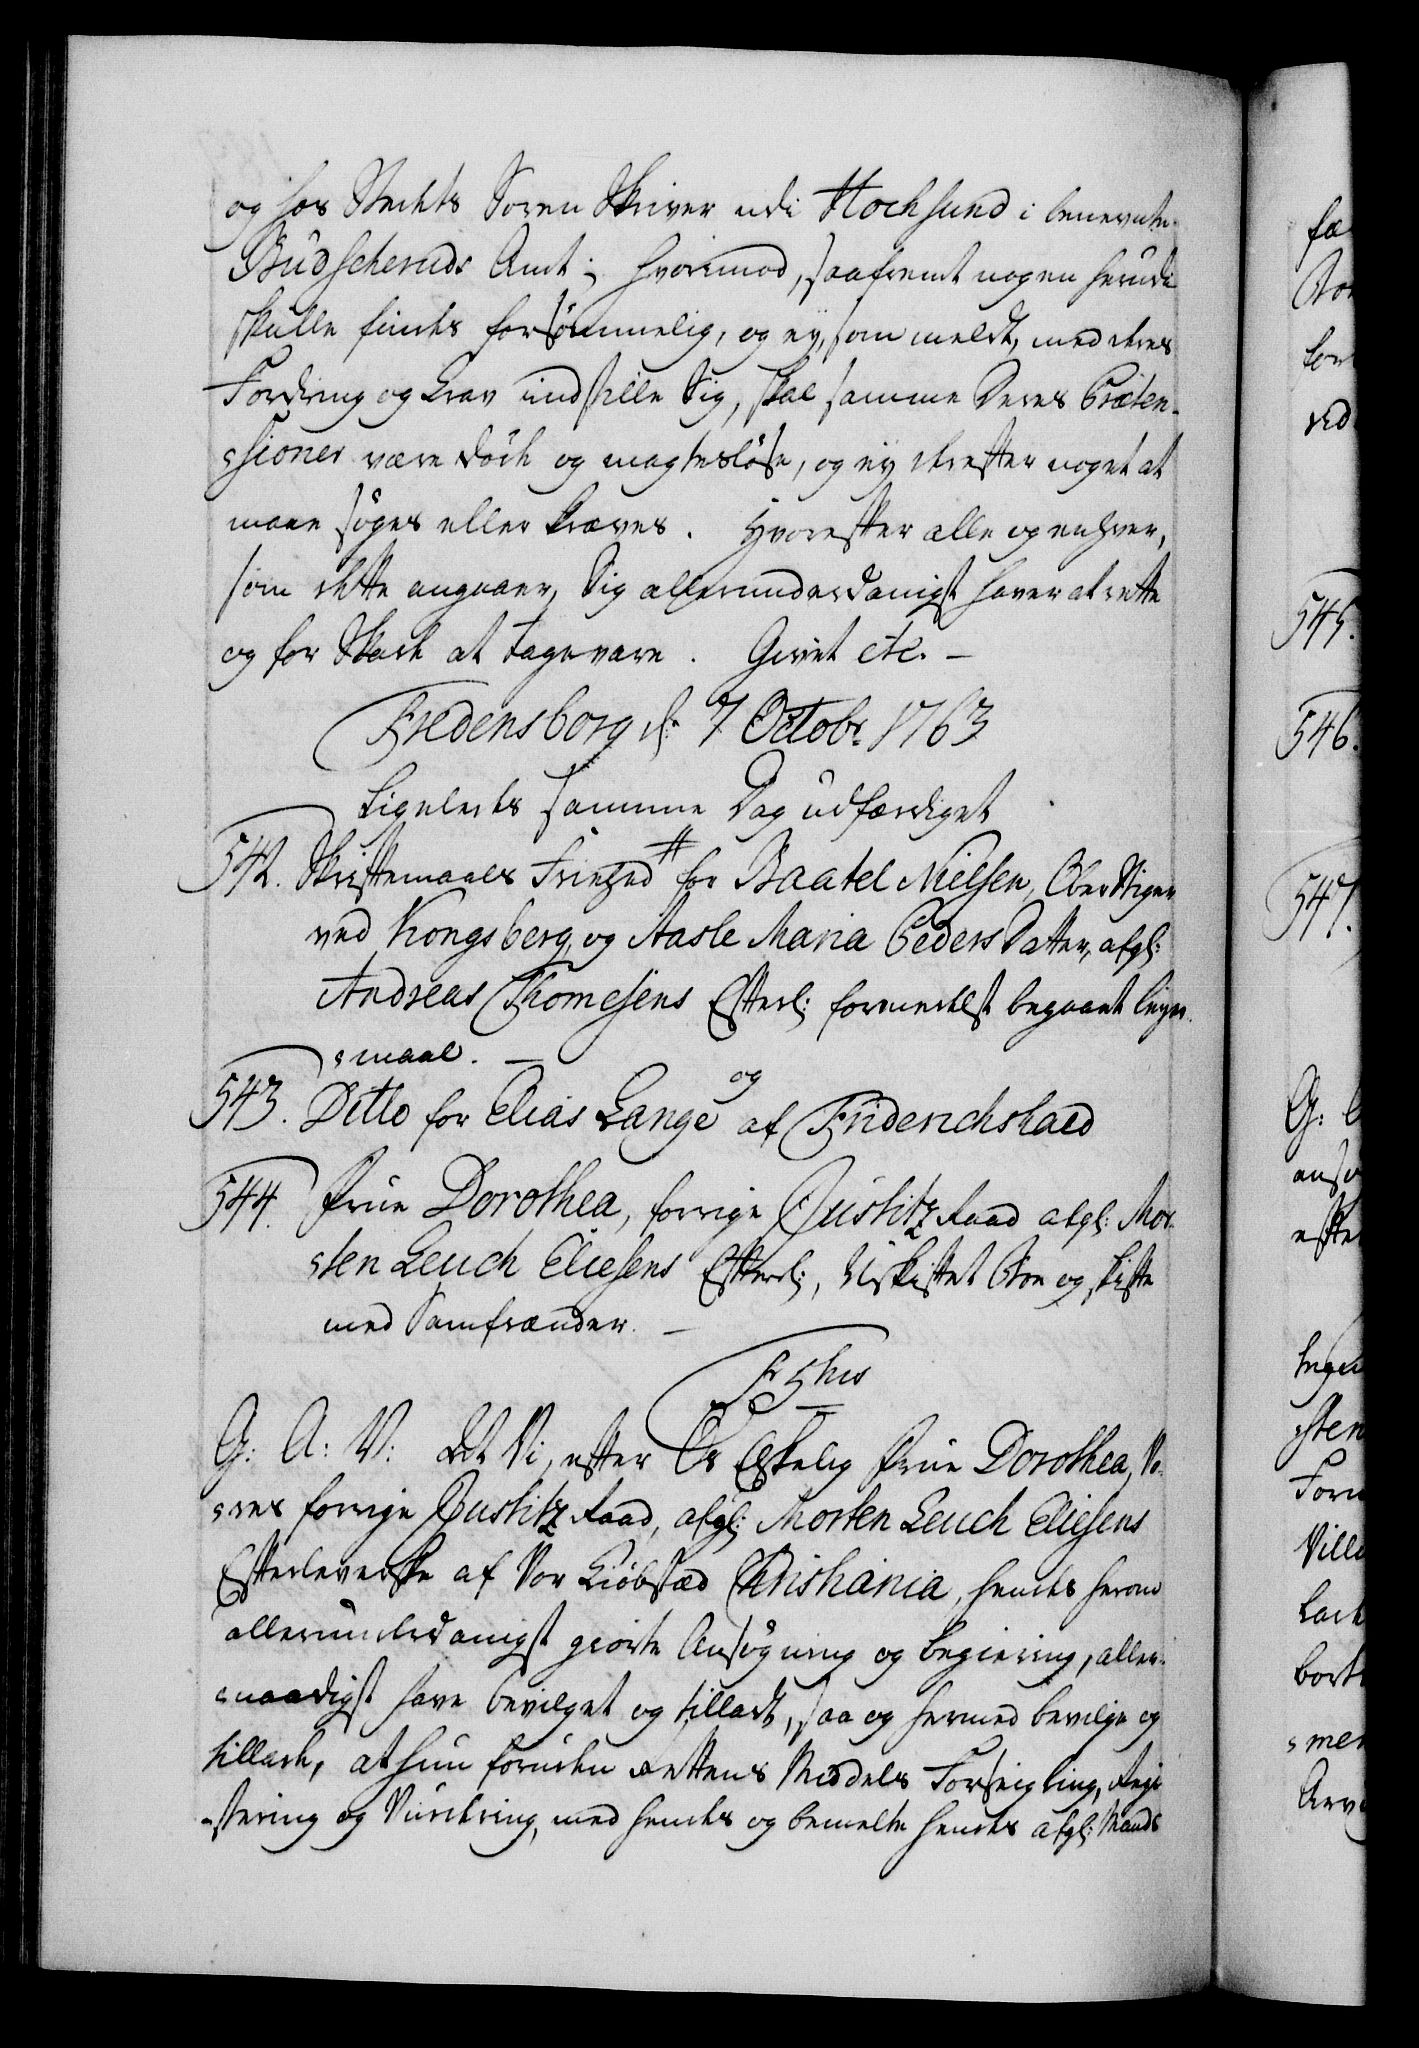 og hos Stedets Soren Skriver udi Hochsund i benevnte
Budscheruds Amt; hvorimod, saafremt nogen herudi
skulle findes forsömmelig, og ey, som meldt, med deres
Fordring og Krav indstille Sig, skal samme Deres Præten-
sioner være döde og magteslöse, og ey derefter noget at
maae söges eller kræves. Hvorefter alle og enhver,
som dette angaaer, Sig allerunderdanigst haver at rette
og for Skade at tage vare. Givet etc. –
Fredensborg d: 7 Octobr. 1763
Ligeledes samme Dag udfærdiget
542. Skriftemaals Friehed # for Baatel Nielsen, Ober Stiger
ved Kongsberg, og Aasle Maria Peders Datter, afgl:
Andreas Thomesens Efterl: formedelst begaaet leyer-
maal. –
543. Ditto for Elias Lange og af Friderichshald
544. Frue Dorothea, forrige Justitz Raad afgl: Mor-
sten Leuch Eliesens Efterl:, Uskiftet Boe og skifte
med Samfrænder. –
F 5 hus
G: A: V: At Vi, efter Os Elskelig Frue Dorothea, Vo-
res forrige Justitz Raad, afgl: Morten Leuch Eliesens
Efterleverske af Vor Kiöbstæd Christiania, hendes herom
allerunderdanigst giorte Ansögning og begiering, aller-
naadigst have bevilget og tilladt, saa og hermed bevilge og
tillade, at hun foruden Rettens Middels Forseigling, Regi-
stering og Vurdering, med hendes og bemelte hendes afgl: Mands
545.
546.
547.